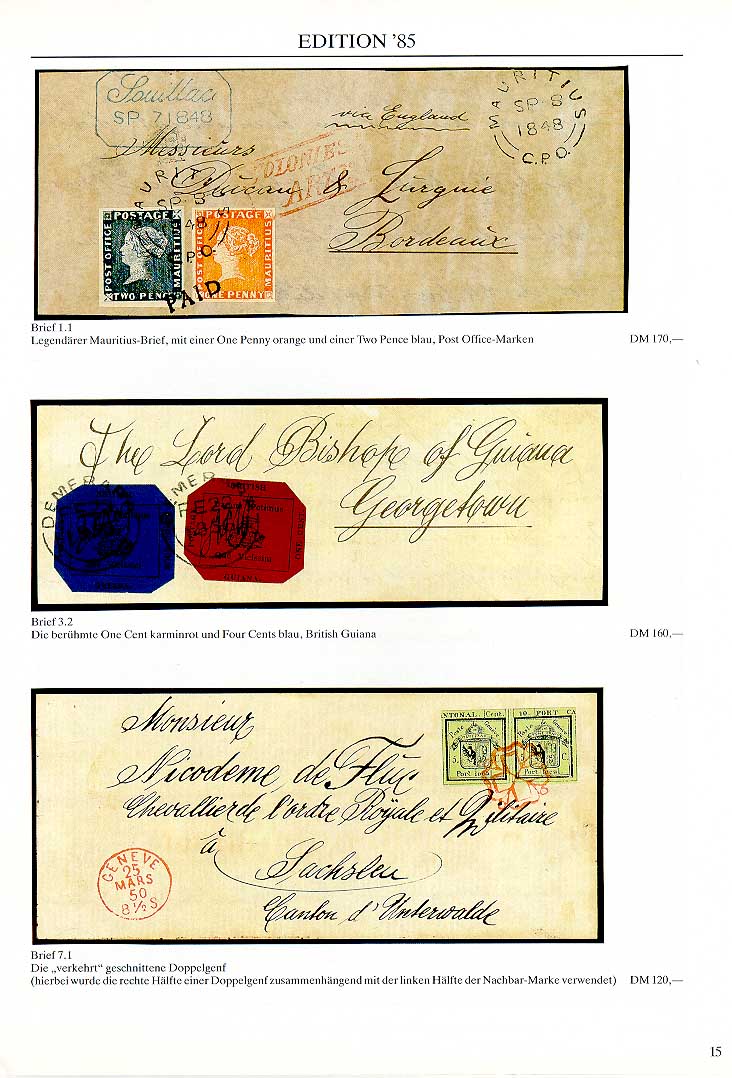 EDITION '85
Souillac
SP 7 1848
MAURITIUS
SP 8
1848
G.P.O.
via England
Messieurs
COLONIES
ART.
Ducau & Lurguie
Bordeaux
SP 8
POST OFFICE
POSTAGE
MAURITIUS
TWO PENCE
POST OFFICE
POSTAGE
MAURITIUS
ONE PENNY
PAID
Brief 1.1
Legendärer Mauritius-Brief, mit einer One Penny orange und einer Two Pence blau, Post Office-Marken DM 170,—
The Lord Bishop of Guiana
Georgetown
DEMERARA
BRITISH
GUIANA.
Brief 3.2
Die berühmte One Cent karminrot und Four Cents blau, British Guiana DM 160,—
Monsieur
Nicodeme de Flüe
Chevallier de l'ordre Royale et Militaire
à
Sachslen
Canton d'Unterwalde
NTONAL. Cent.
10. PORT CA
Poste de Genève
5. C
Port local
Port local
GENEVE
25
MARS
50
8½ S
Brief 7.1
Die „verkehrt“ geschnittene Doppelgenf
(hierbei wurde die rechte Hälfte einer Doppelgenf zusammenhängend mit der linken Hälfte der Nachbar-Marke verwendet) DM 120,—
15